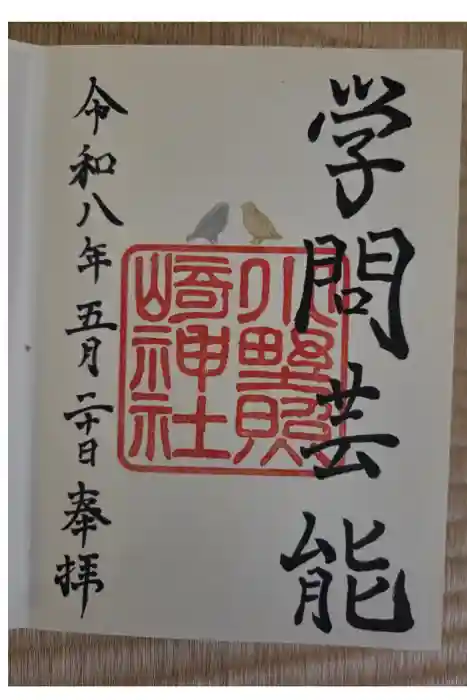 学問芸能
小野照
崎神社
令和八年五月二十日 奉拝